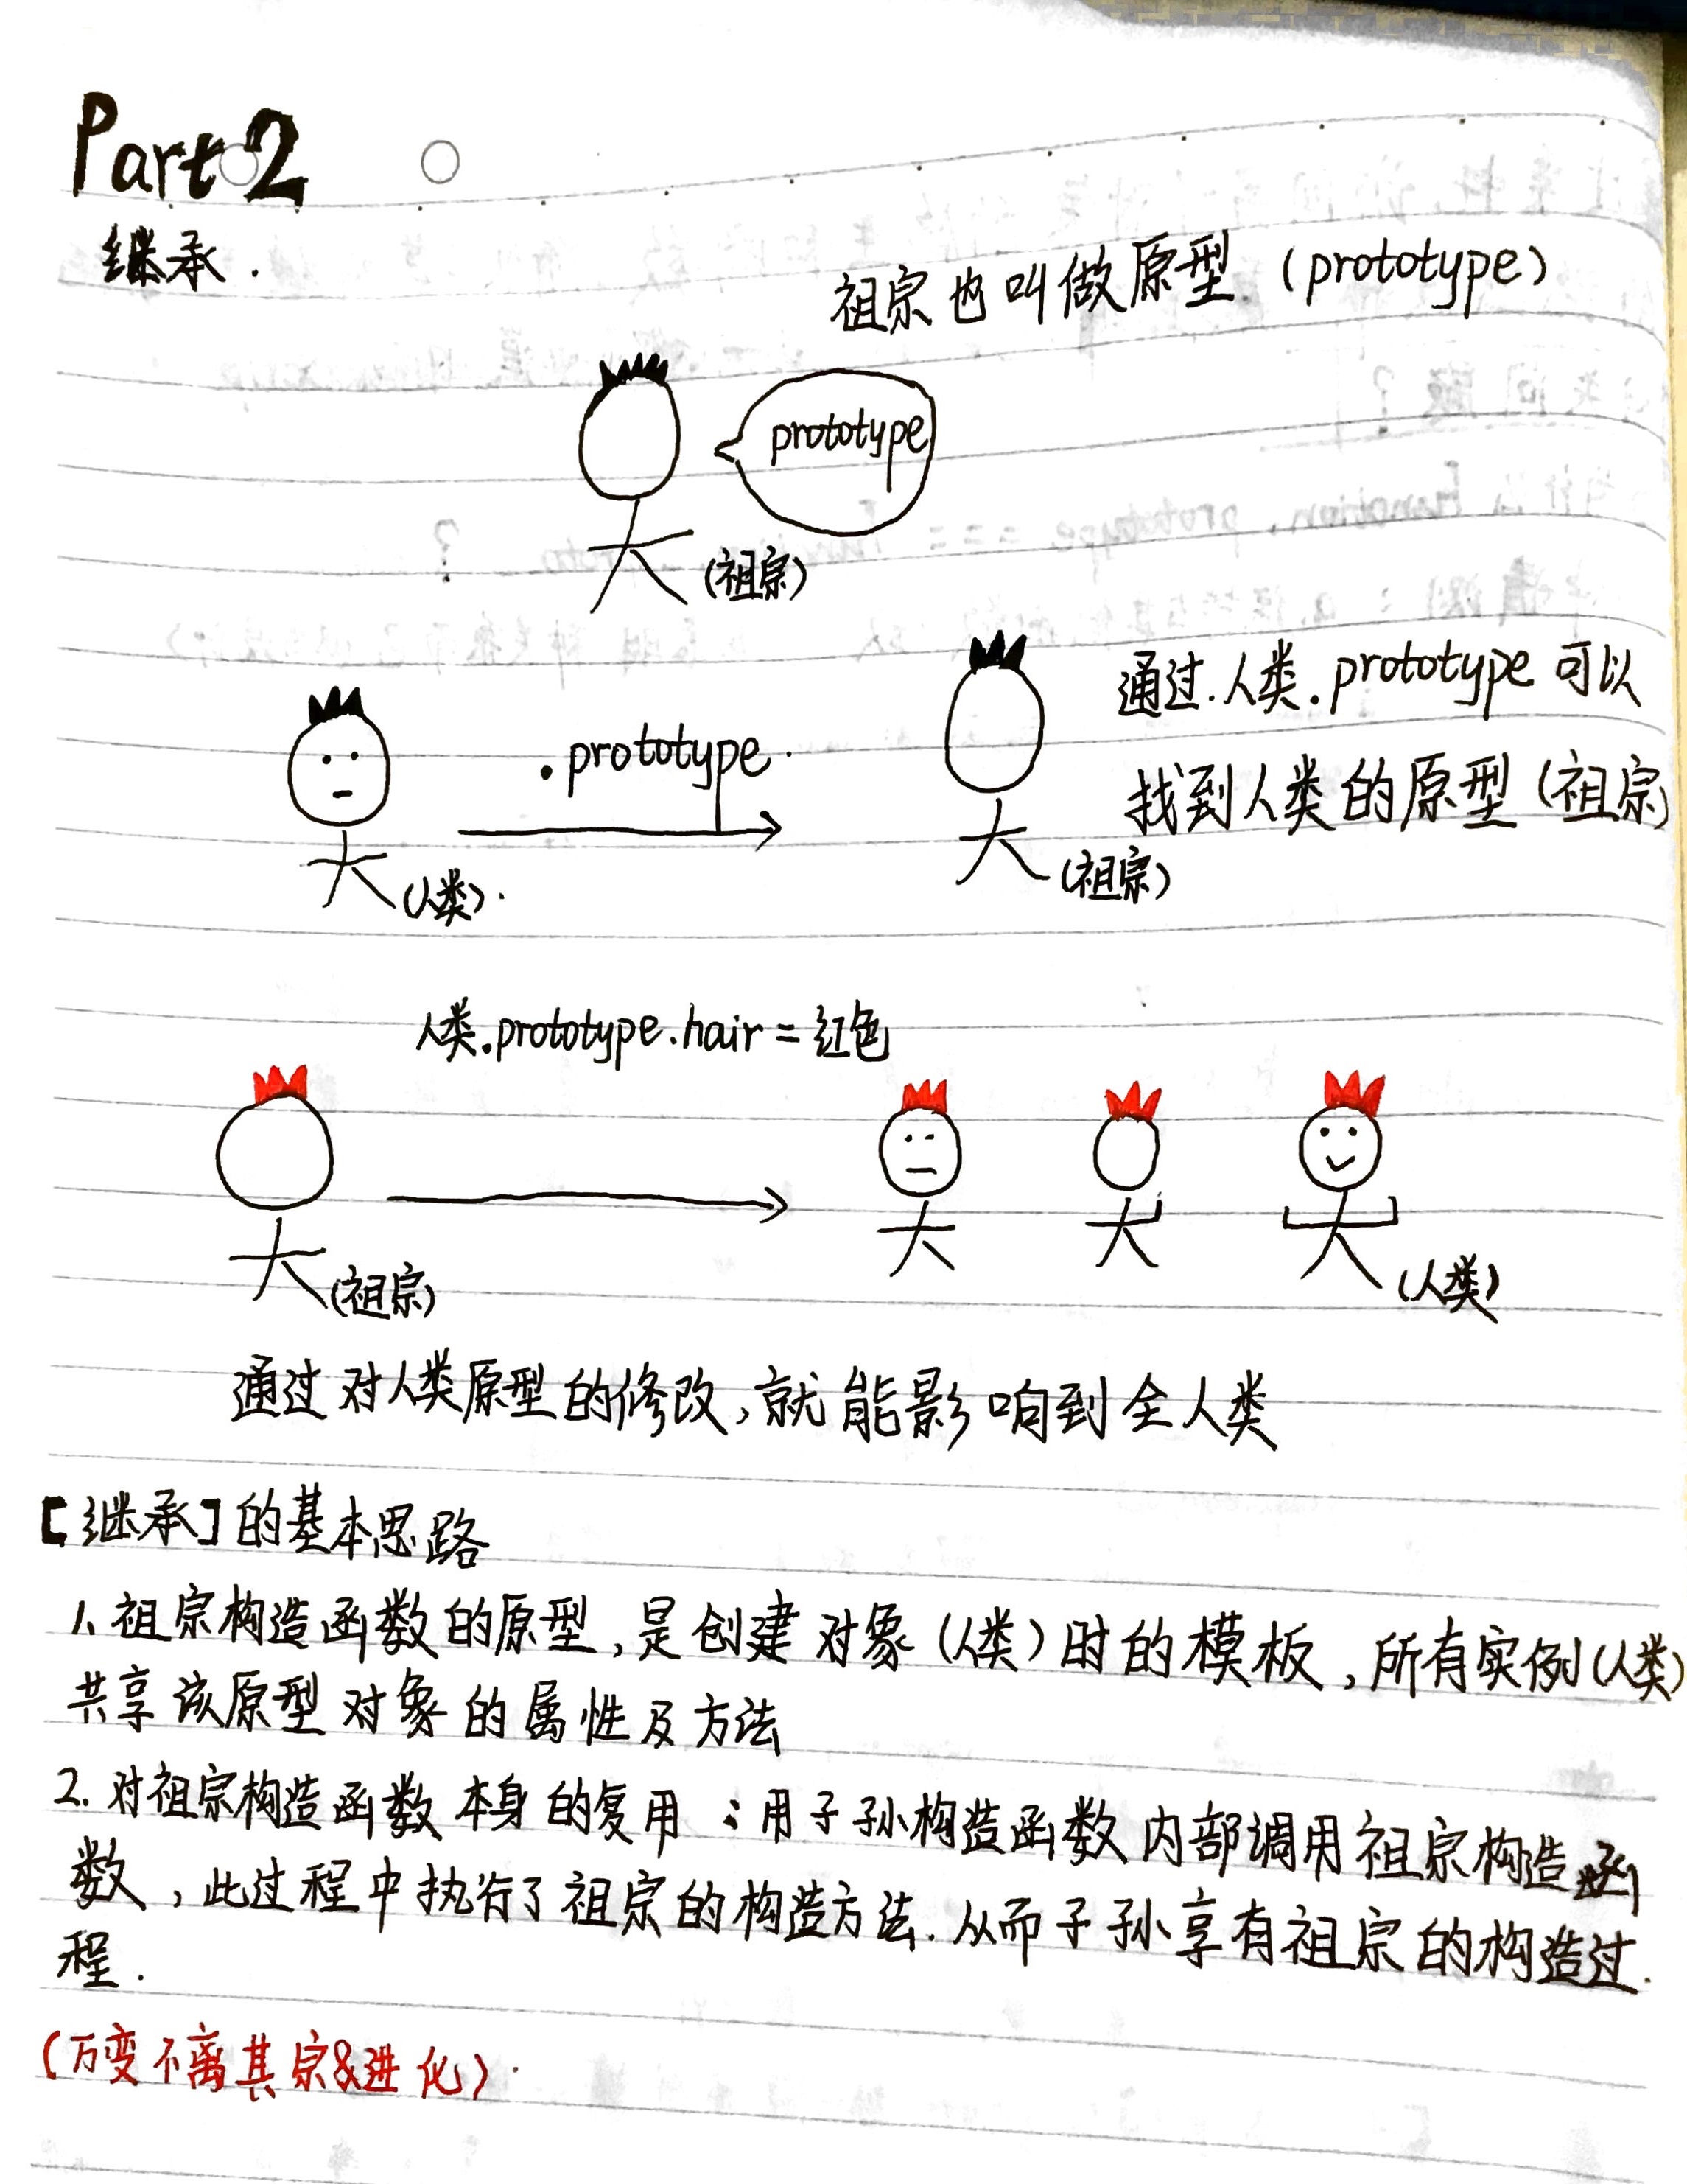 Part 2
继承.
祖宗也叫做原型 (prototype)
prototype
(祖宗)
.prototype
(人类).
(祖宗)
通过.人类.prototype 可以
找到人类的原型 (祖宗)
人类.prototype.hair = 红色
(祖宗)
(人类)
通过对人类原型的修改,就能影响到全人类
[继承]的基本思路
1. 祖宗构造函数的原型,是创建对象(人类)时的模板,所有实例(人类)
共享该原型对象的属性及方法
2. 对祖宗构造函数本身的复用:用子孙构造函数内部调用祖宗构造函
数,此过程中执行了祖宗的构造方法.从而子孙享有祖宗的构造过.
程.
(万变不离其宗&进化).